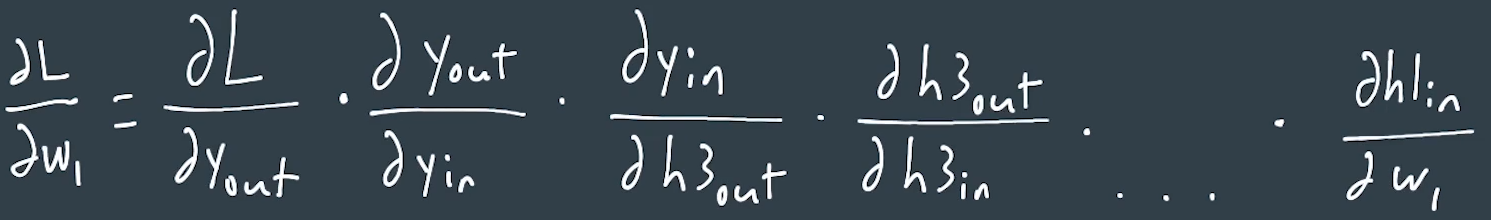 ∂L/∂w₁ = ∂L/∂yout · ∂yout/∂yin · ∂yin/∂h3out · ∂h3out/∂h3in · ... · ∂h1in/∂w₁